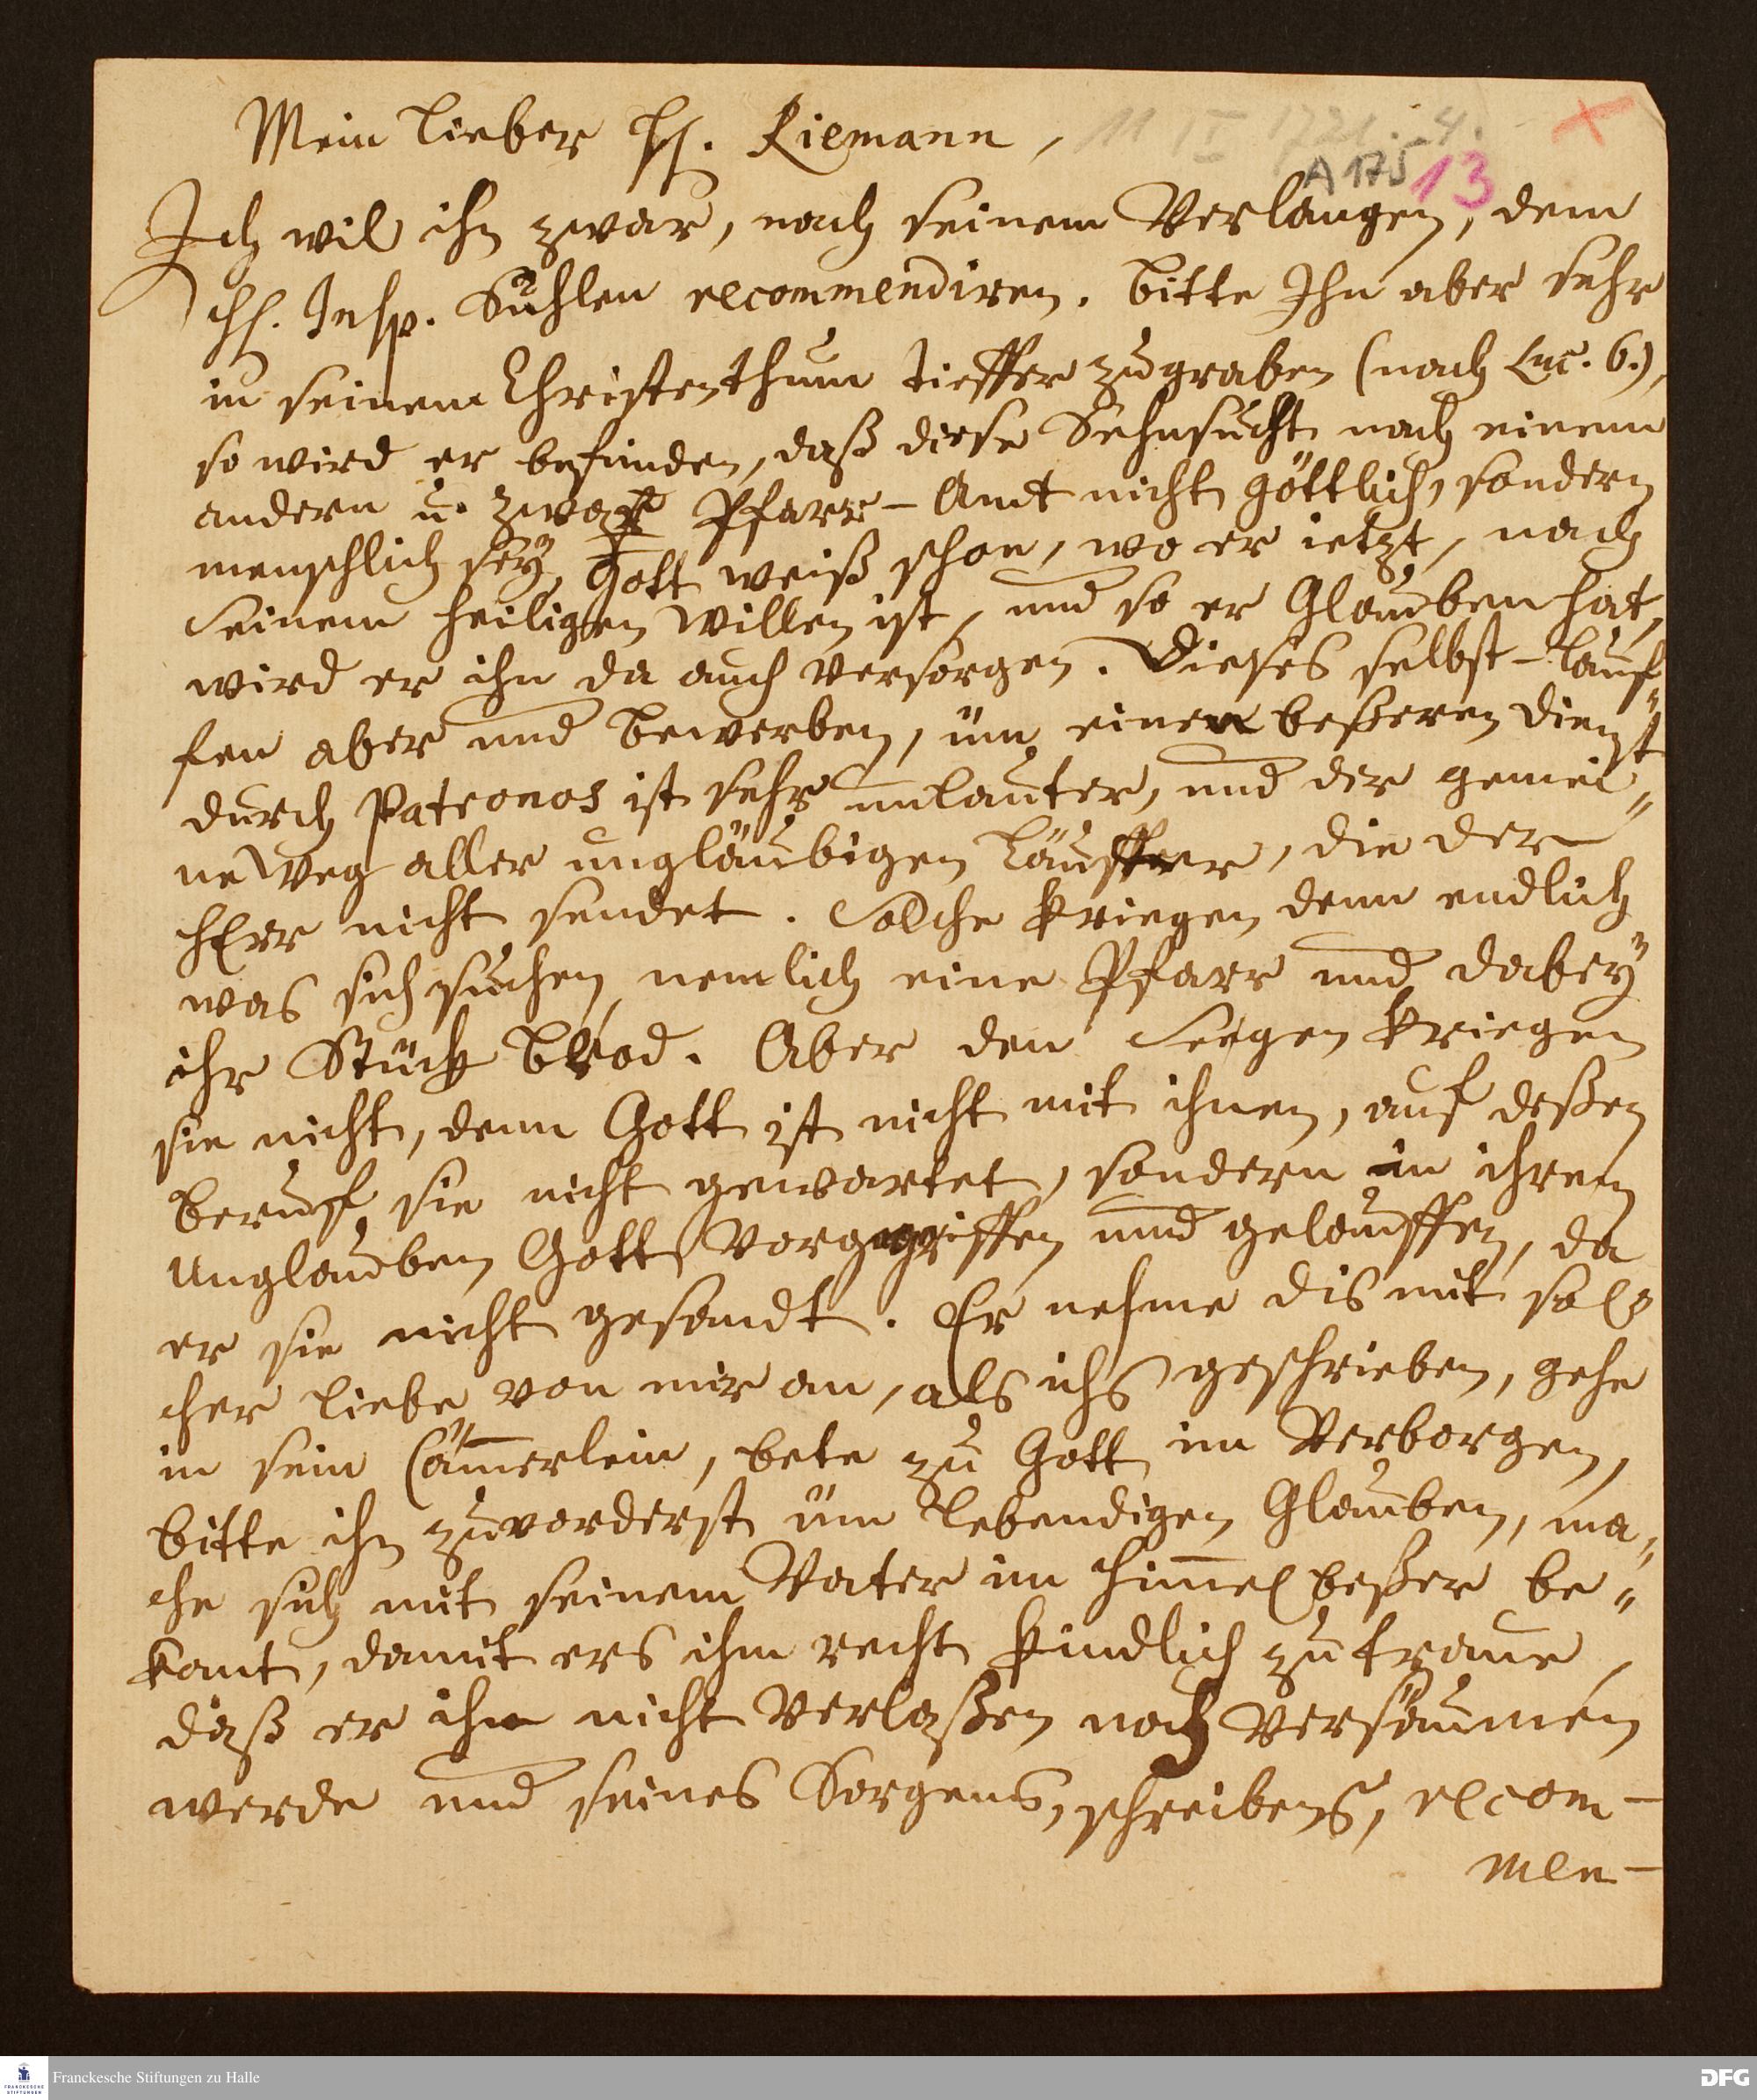 Mein lieber H. Riemann,
11 II 1721. 4.
A 175 13
Ich wil ihn zwar, nach seinem Verlangen, dem
H. Insp. Sühlen recommendiren. bitte Ihn aber sehr
in seinem Christenthum tieffer zugraben (nach Luc. 6.),
so wird er befinden, daß diese Sehnsucht nach einem
andern u. zwar Pfarr-Amt nicht göttlich, sondern
menschlich sey. Gott weiß schon, wo er ietzt, nach
seinem heiligen Willen ist, und so er Glauben hat,
wird er ihn da auch versorgen. Dieses selbst-lauf-
fen aber und bewerben, üm einen beßeren dienst
durch Patronos ist sehr unlauter, und der gemei-
ne Weg aller ungläubigen Läuffer, die der
HErr nicht sendet. Solche kriegen denn endlich
was sich suchen, nemlich eine Pfarr und dabey
ihr Stück brod. Aber den Seegen kriegen
sie nicht, denn Gott ist nicht mit ihnen, auf deßen
beruf sie nicht gewartet, sondern in ihrem
Unglauben Gott vorgegriffen und gelauffen, da
er sie nicht gesandt. Er nehme dis mit sol-
cher Liebe von mir an, als ichs geschrieben, gehe
in sein Cämerlein, bete zu Gott im Verborgen,
bitte ihn zuvorderst üm lebendigen Glauben, ma-
che sich mit seinem Vater im Himel beßer be-
kant, damit ers ihm recht kindlich zutraue,
daß er ihn nicht verlaßen noch versäumen
werde und seines Sorgens, schreibens, recom-
men-
Franckesche Stiftungen zu Halle
FRANCKESCHE
STIFTUNGEN
DFG